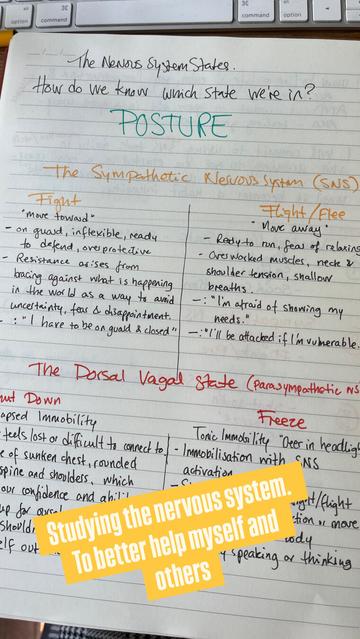 ⌘
command
option
⌘
command
option
The Nervous System States.
How do we know which state we're in?
POSTURE
The Sympathetic Nervous System (SNS)
Fight
"move toward"
- on guard, inflexible, ready
to defend, overprotective
- Resistance arises from
bracing against what is happening
in the world as a way to avoid
uncertainty, fear & disappointment.
- : "I have to be on guard & closed"
Flight/Flee
"Move away"
- Ready to run, fear of relaxing
- Overworked muscles, neck &
shoulder tension, shallow
breaths.
- : "I'm afraid of showing my
needs."
- : "I'll be attacked if I'm vulnerable.
The Dorsal Vagal State (parasympathetic NS
ut Down
apsed Immobility
feels lost or difficult to connect to
e of sunken chest, rounded
spine and shoulders, which
our confidence and
up for
should
elf out
Freeze
Tonic Immobility "Deer in headligh
- Immobilisation with SNS
activation
/flight
move
ody
speaking or thinking
Studying the nervous system.
To better help myself and
others